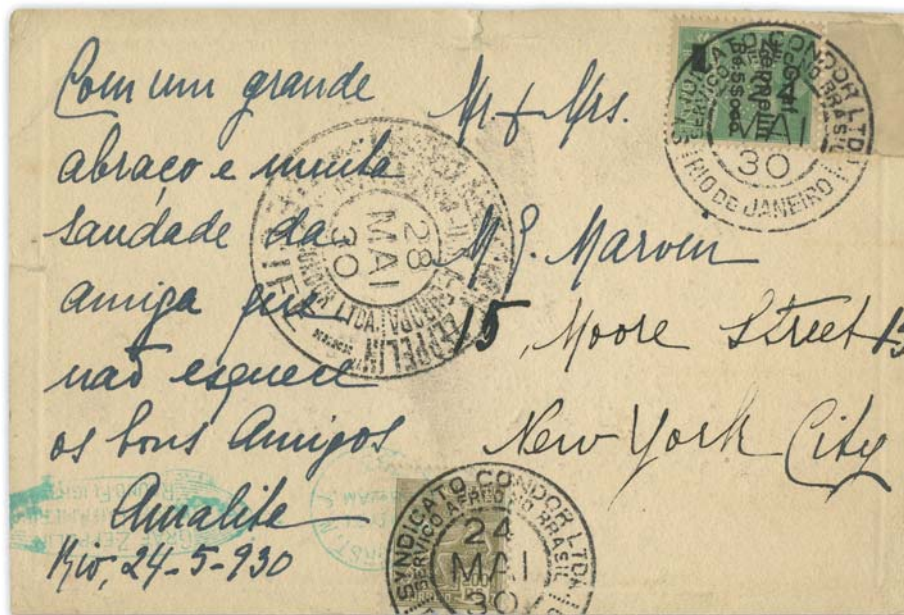 Com um grande
abraço e muita
saudade da
amiga que
não esquece
os bons Amigos
Amalite
Rio, 24-5-930
Mr & Mrs.
M. E. Marvin
15, Moore Street 15
New York City
SYNDICATO CONDOR LTDA.
SERVIÇO AEREO NO BRASIL
MAI
30
RIO DE JANEIRO
Zeppelin
28
MAI
30
ZEPPELIN
RECIFE
SYNDICATO CONDOR LTDA.
SERVIÇO AEREO NO BRASIL
24
MAI
30
GRAF ZEPPELIN